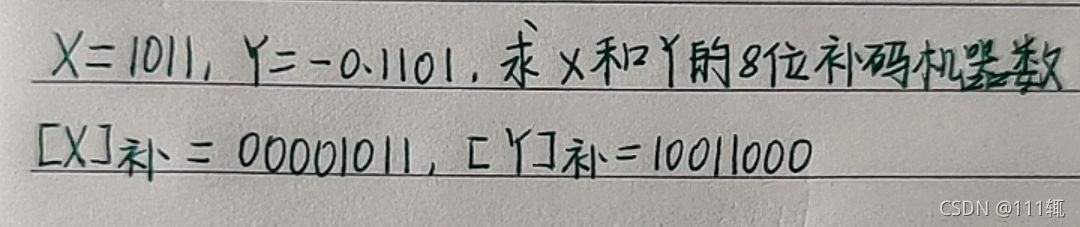 X=1011, Y=-0.1101, 求X和Y的8位补码机器数
[X]补=00001011, [Y]补=10011000
CSDN @111辄